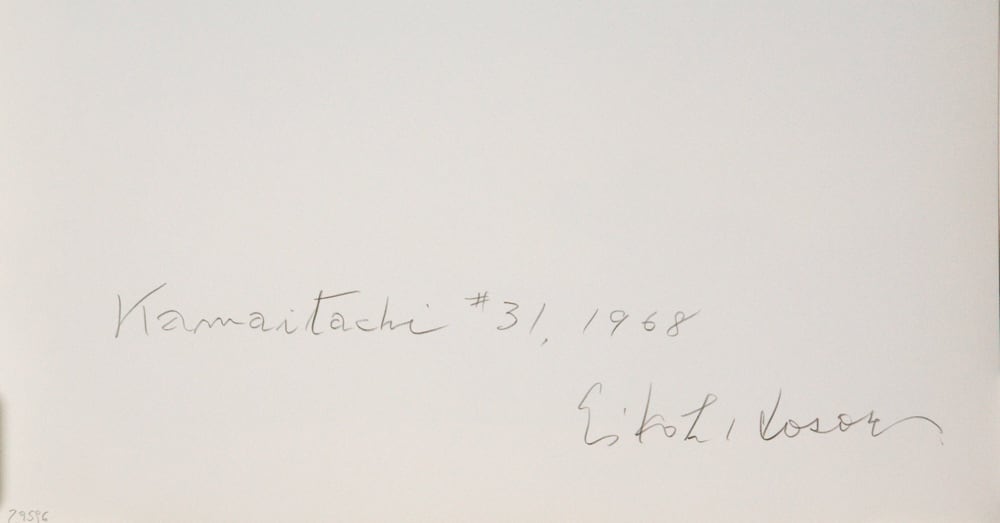 Kamaitachi #31, 1968
Eikoh Hosoe
79596